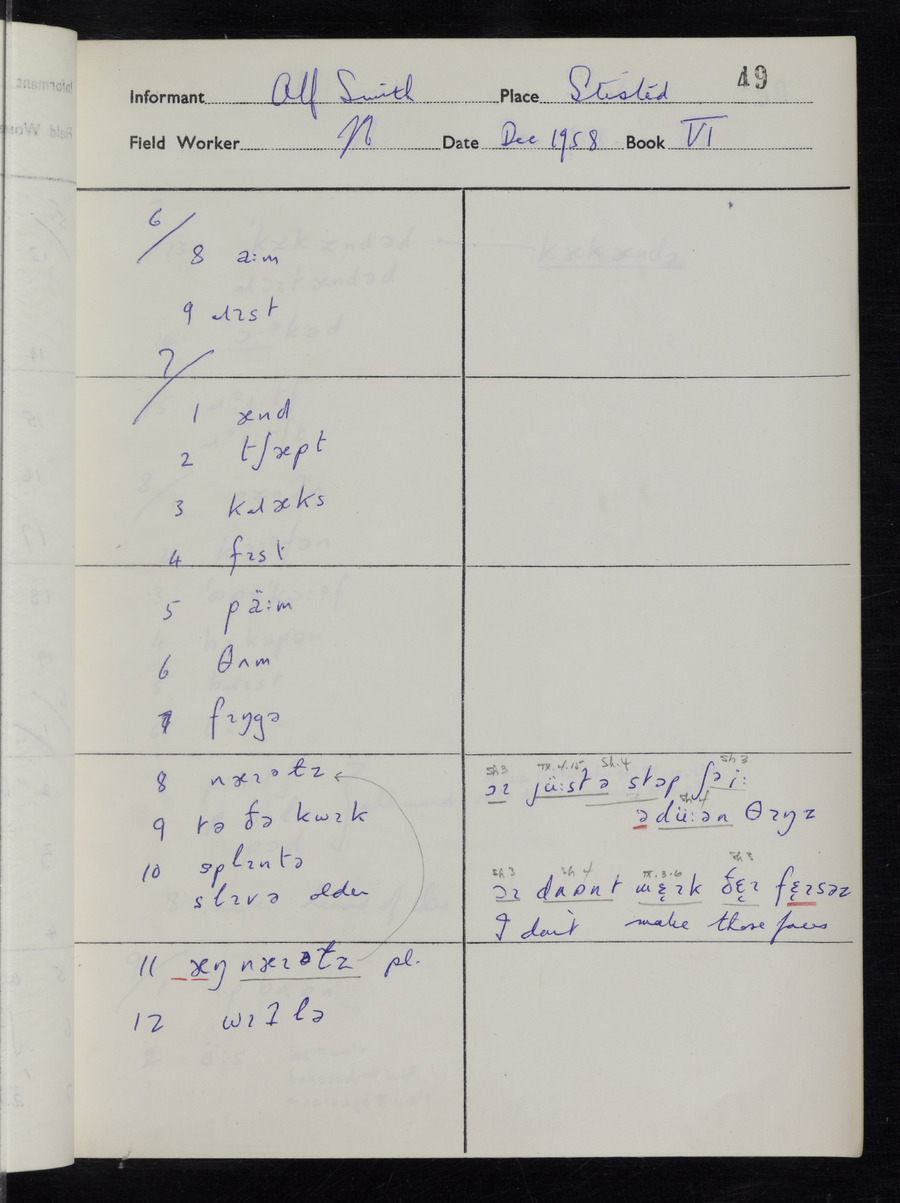 49
Informant Alf Smith Place Stisted
Field Worker N Date Dec 1958 Book VI
6/
8 a:m
9 ɹɪst
7/
1 ænd
2 tʃæpt
3 kɹæks
4 fɪst
5 pä:m
6 θʌm
7 fɪŋgə
8 næɪ ə tɫz
9 tə ðə kwɪk
10 splɪntə
slɪvə older
11 æŋ næɪ ə tɫz pl.
12 wɪɫə
sh 3 IX.4.15 sh.4 sh 3
əɪ jü:stə stɒp ʃəi:
sh 4
ədü:ən θəŋz
sh 3 sh 4 IX.3.6 sh 3
əɪ dʌont mɛ̨ɪk ðɛ̨ɪ fɛ̨ɪsəz
I don't make those faces